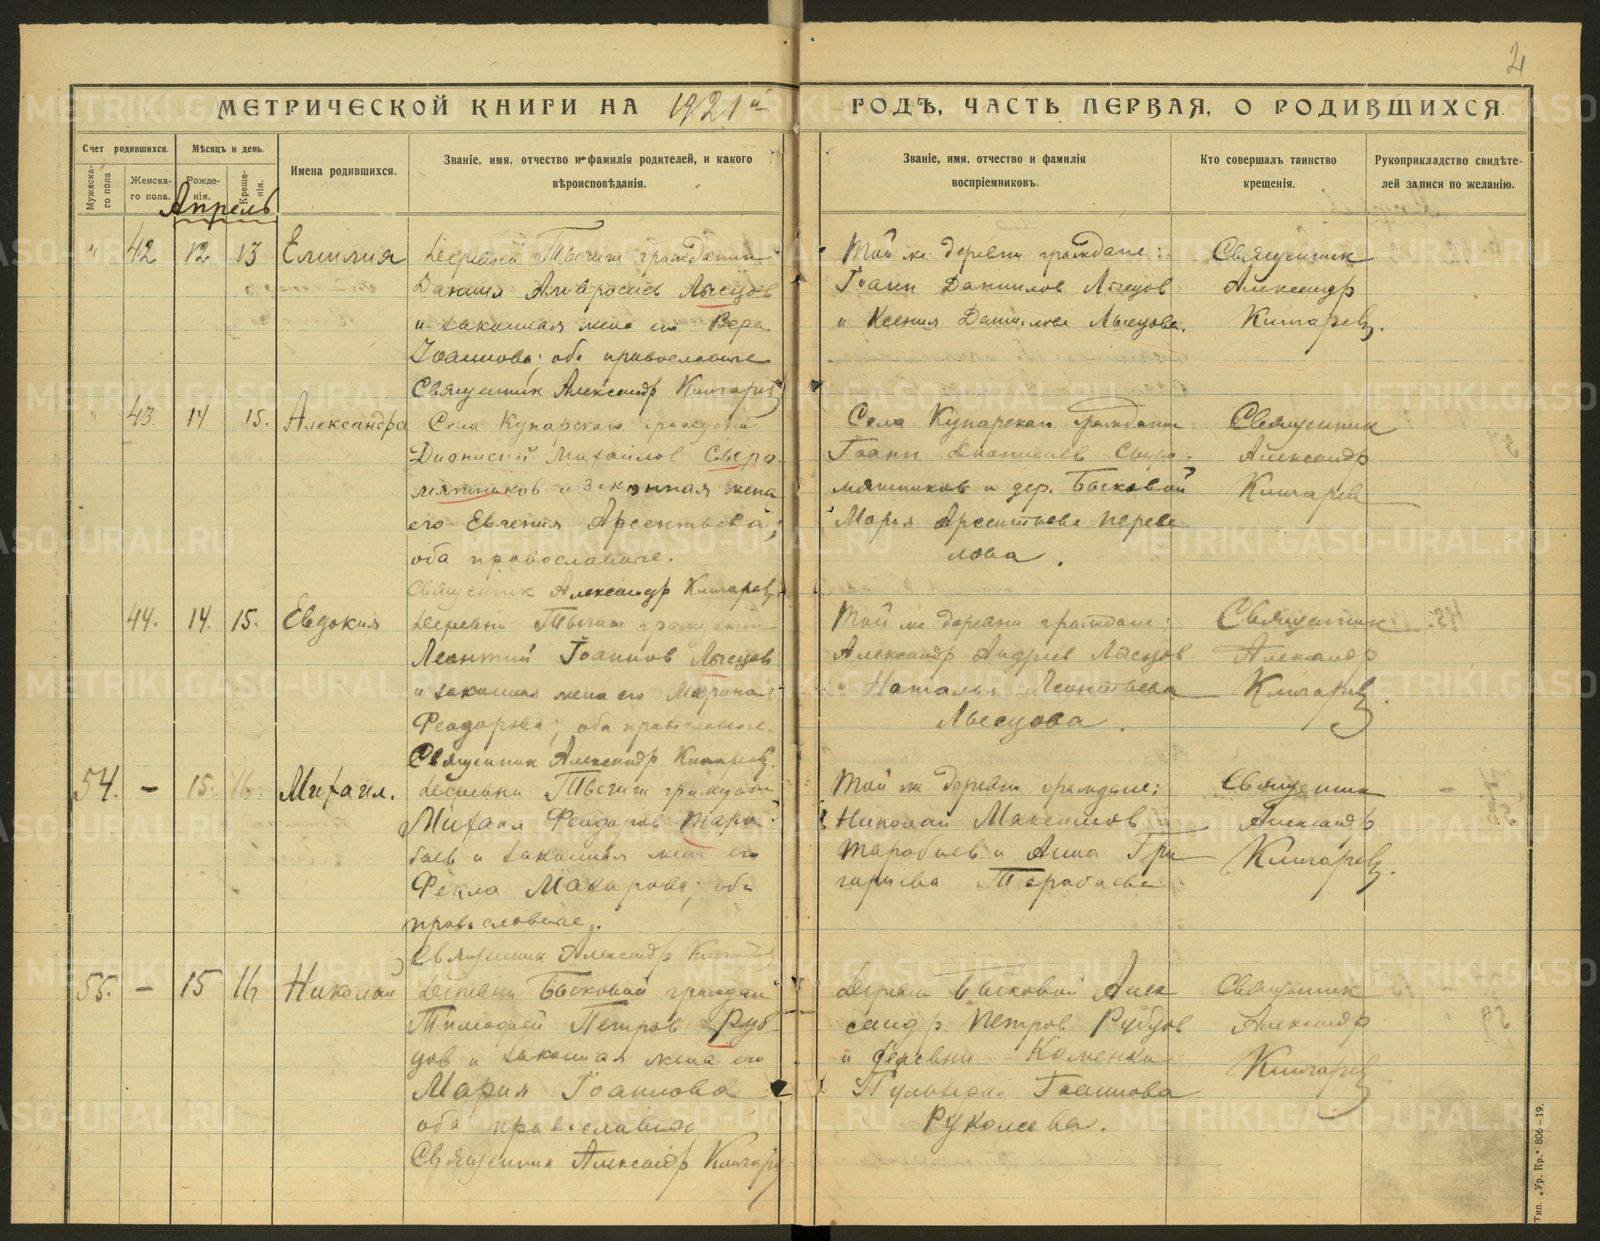 2
МЕТРИЧЕСКОЙ КНИГИ НА 1921 й ГОДЪ, ЧАСТЬ ПЕРВАЯ, О РОДИВШИХСЯ.
Счет родившихся.
Мужеска-го пола
Женска-го пола.
Мѣсяцъ и день.
Рожде-нія.
Креще-нія.
Имена родившихся.
Званіе, имя, отчество и фамилія родителей, и какого
вѣроисповѣданія.
Званіе, имя, отчество и фамилія
воспріемниковъ.
Кто совершалъ таинство
крещенія.
Рукоприкладство свидѣте-
лей записи по желанію.
Апрель
" 42 12 13 Емилия
Деревни гражданин
Даниил Амвросиев Лысцов
и законная жена его Вера
Иоаннова; оба православные
Священник Александр
Той же деревни граждане:
Иоанн Даниилов Лысцов
и Ксения Даниилова Лысцова.
Священник
Александр
" 43. 14 15. Александра
Села Купарскаго гражданин
Дионисий Михайлов Сыро-
мятников и законная жена
его Евгения Арсентьева;
оба православные.
Священник Александр
Села Купарскаго гражданин
Иоанн Дионисиев Сыро-
мятников и дер. Быковой
Мария Арсентьева Переве-
лова.
Священник
Александр
44. 14. 15. Евдокия
Деревни гражданин
Леонтий Иоаннов Лысцов
и законная жена его Марина
Феодорова; оба православные.
Священник Александр
Той же деревни граждане:
Александр Андреев Лысцов
и Наталья Леонтьева
Лысцова.
Священник
Александр
54. - 15. 16. Михаил.
Деревни гражданин
Михаил Феодоров Тара-
баев и законная жена его
Фекла Макарова; оба
православные.
Священник Александр
Той же деревни граждане:
Николай Максимов
Тарабаев и Анна Гри-
горьева Тарабаева
Священник
Александр
55. - 15 16 Николай
Деревни Быковой граждан
Тимофей Петров Руб-
цов и законная жена его
Мария Иоаннова
оба православные
Священник Александр
Деревни Быковой Алек-
сандр Петров Рубцов
и деревни Каменки
Иоаннова
Священник
Александр
Тип. „Ур. Кр.“ 806—19.
METRIKI.GASO-URAL.RU